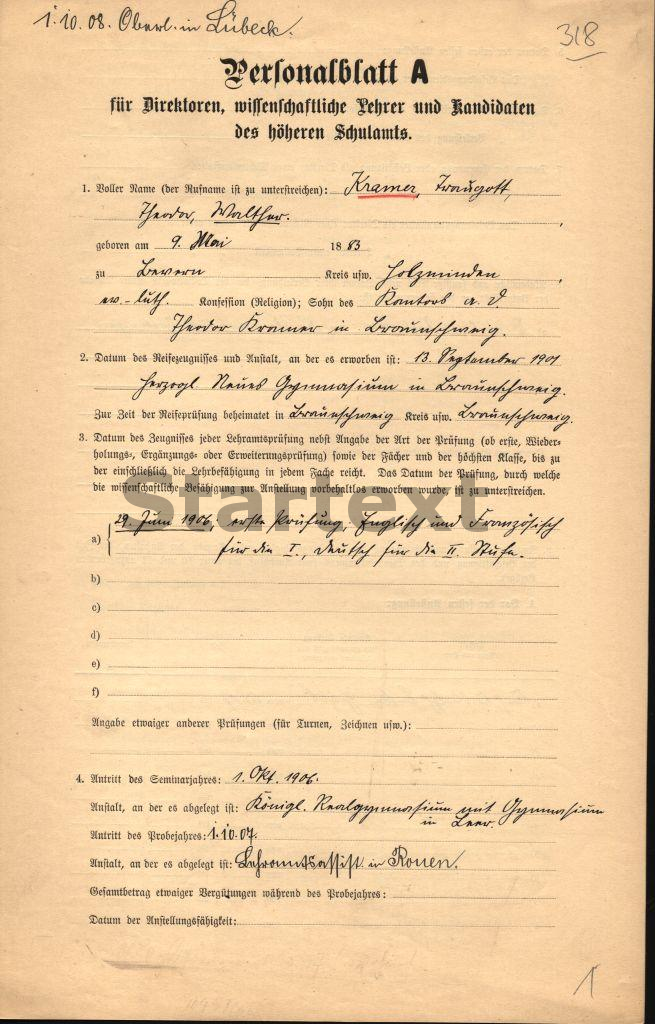 1.10.08. Oberl. in Lübeck.
318
Personalblatt A
für Direktoren, wissenschaftliche Lehrer und Kandidaten
des höheren Schulamts.
1. Voller Name (der Rufname ist zu unterstreichen): Kramer, Traugott,
Theodor, Walther.
geboren am 9. Mai 1883
zu Bevern Kreis usw. Holzminden,
ev.-luth. Konfession (Religion); Sohn des Kantors a. D.
Theodor Kramer in Braunschweig.
2. Datum des Reifezeugnisses und Anstalt, an der es erworben ist: 13. September 1901
Herzogl. Neues Gymnasium in Braunschweig.
Zur Zeit der Reifeprüfung beheimatet in Braunschweig Kreis usw. Braunschweig.
3. Datum des Zeugnisses jeder Lehramtsprüfung nebst Angabe der Art der Prüfung (ob erste, Wieder-
holungs-, Ergänzungs- oder Erweiterungsprüfung) sowie der Fächer und der höchsten Klasse, bis zu
der einschließlich die Lehrbefähigung in jedem Fache reicht. Das Datum der Prüfung, durch welche
die wissenschaftliche Befähigung zur Anstellung vorbehaltlos erworben wurde, ist zu unterstreichen.
Startext
a) 29. Juni 1906, erste Prüfung, Englisch und Französisch
für die I., Deutsch für die II. Stufe.
b)
c)
d)
e)
f)
Angabe etwaiger anderer Prüfungen (für Turnen, Zeichnen usw.):
4. Antritt des Seminarjahres: 1. Okt. 1906.
Anstalt, an der es abgelegt ist: Königl. Realgymnasium mit Gymnasium
in Leer.
Antritt des Probejahres: 1.10.07.
Anstalt, an der es abgelegt ist: Lehramtsassist in Rouen.
Gesamtbetrag etwaiger Vergütungen während des Probejahres:
Datum der Anstellungsfähigkeit:
1